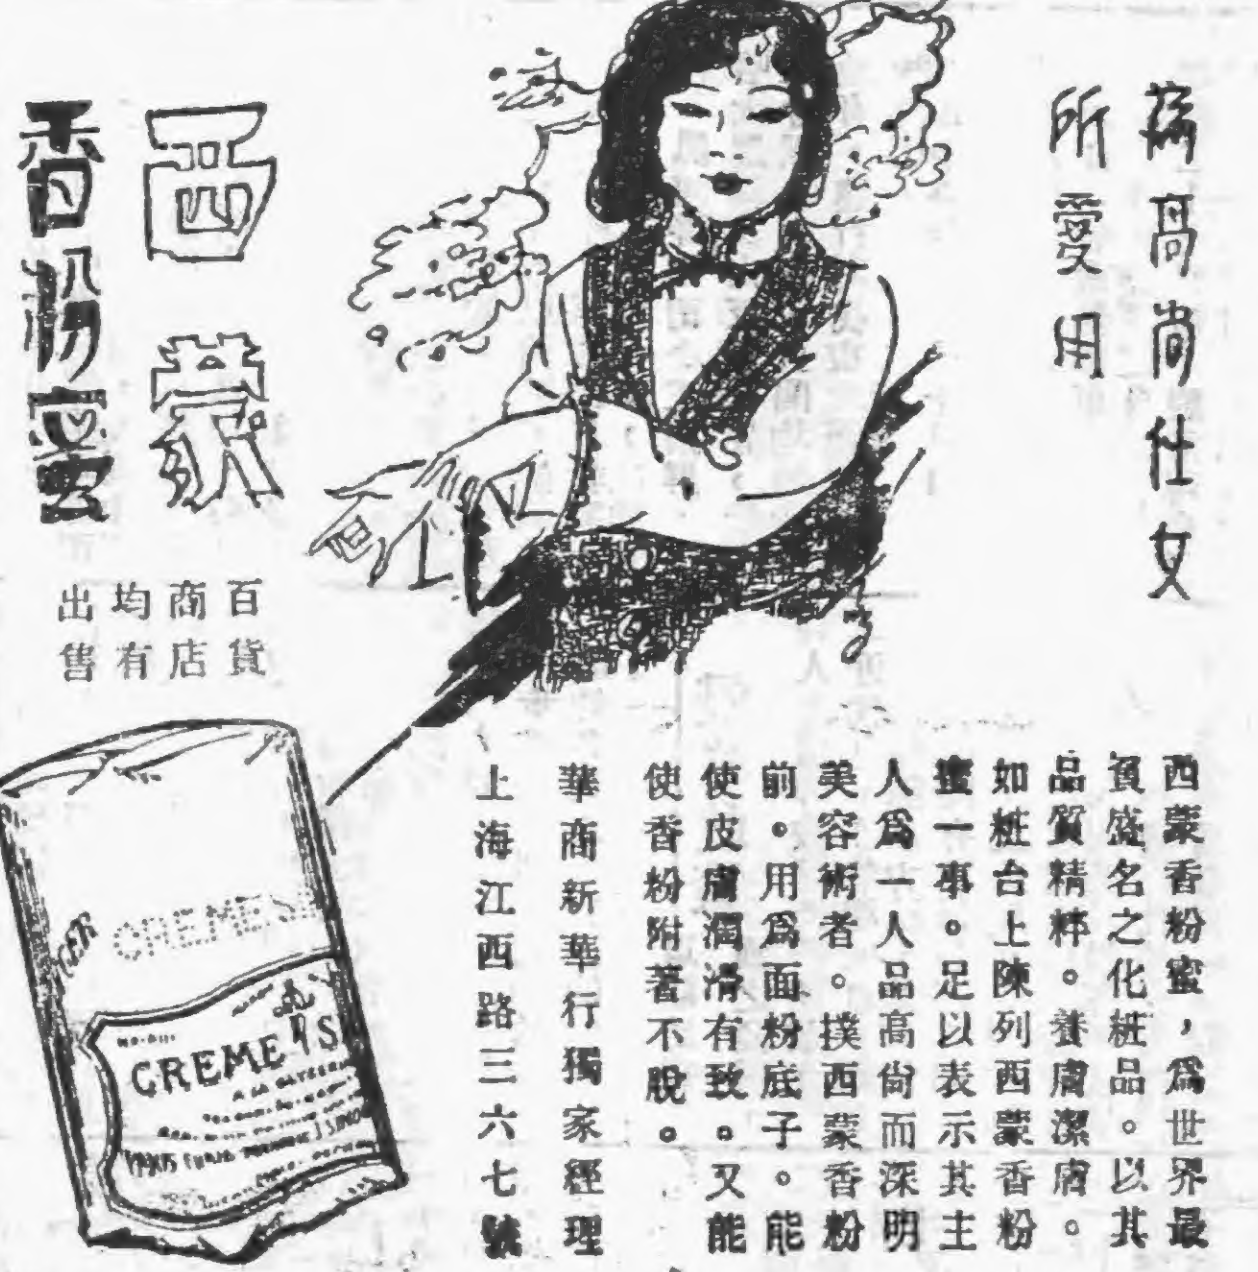 為高尚仕女
所愛用
西蒙
香粉蜜
百貨
商店
均有
出售
西蒙香粉蜜，為世界最
負盛名之化粧品。以其
品質精粹。養膚潔膚。
如粧台上陳列西蒙香粉
蜜一事。足以表示其主
人為一人品高尙而深明
美容術者。撲西蒙香粉
前。用為面粉底子。能
使皮膚潤滑有致。又能
使香粉附著不脫。
華商新華行獨家經理
上海江西路三六七號
CREME
CREME S
A LA